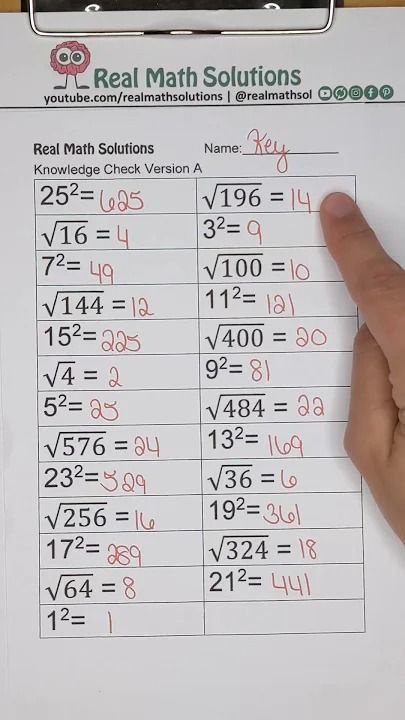 Real Math Solutions
youtube.com/realmathsolutions | @realmathsol
Real Math Solutions Name: Key
Knowledge Check Version A
25²= 625 √196 = 14
√16 = 4 3²= 9
7²= 49 √100 = 10
√144 = 12 11²= 121
15²= 225 √400 = 20
√4 = 2 9²= 81
5²= 25 √484 = 22
√576 = 24 13²= 169
23²= 529 √36 = 6
√256 = 16 19²= 361
17²= 289 √324 = 18
√64 = 8 21²= 441
1²= 1